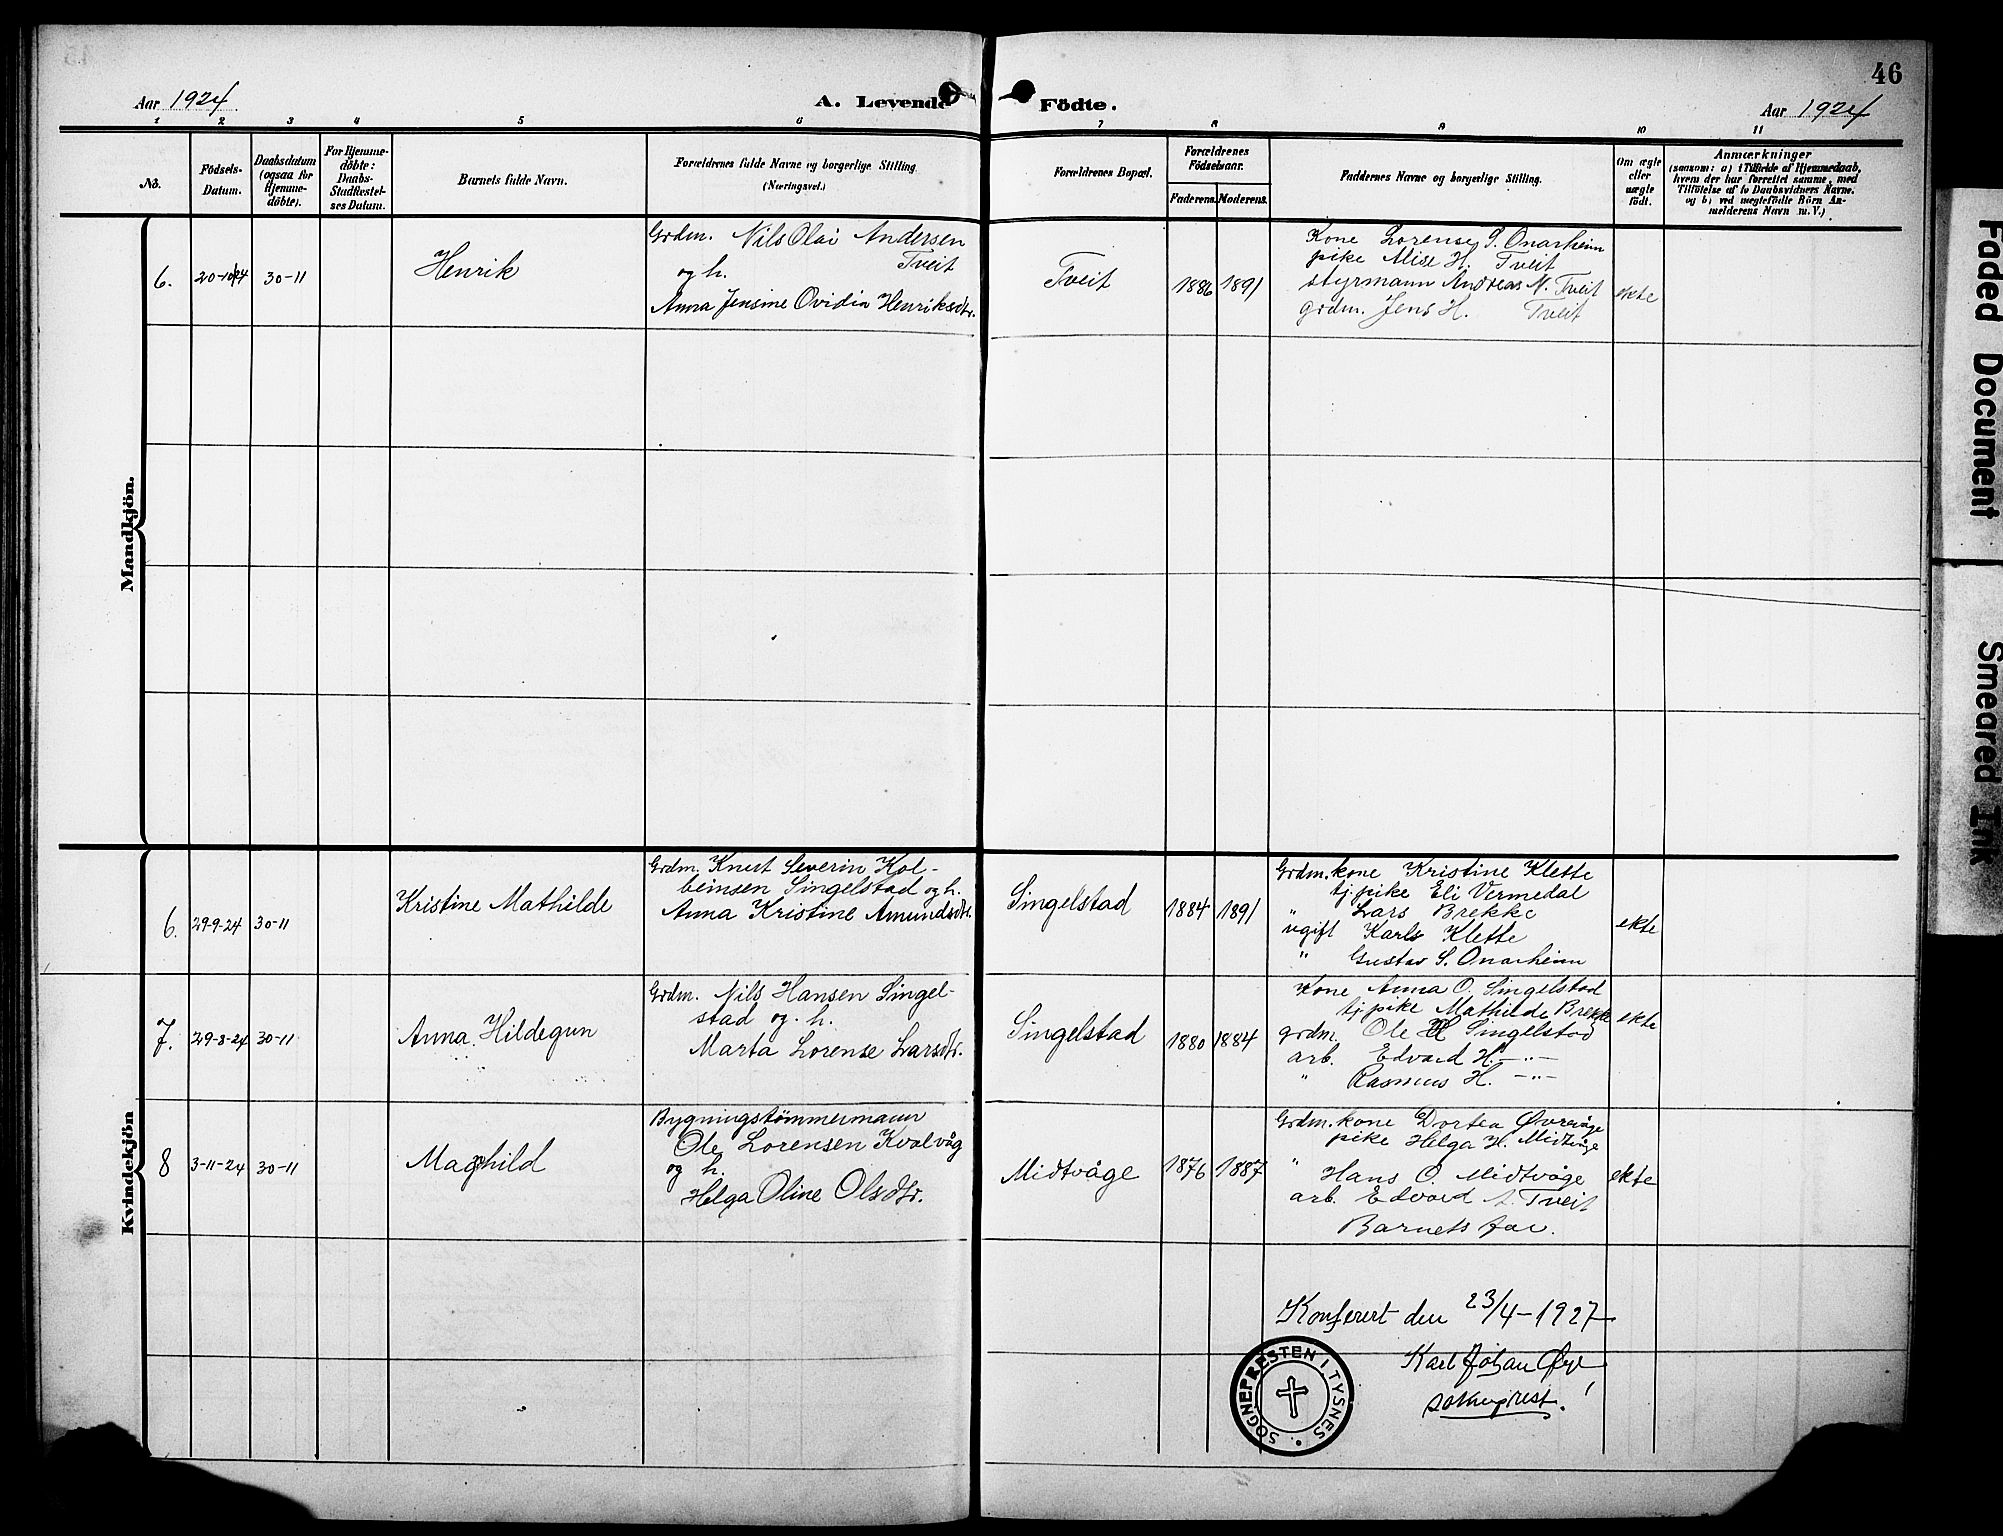 46
Aar 1924
A. Levende Födte.
Aar 1924
1 2 3 4 5 6 7 8 9 10 11
No.
Födsels-Datum.
Daabsdatum (ogsaa for Hjemme-döbte).
For Hjemme-döbte: Daabs-Stadfæstel-ses Datum.
Barnets fulde Navn.
Forældrenes fulde Navne og borgerlige Stilling (Næringsvei.)
Forældrenes Bopæl.
Forældrenes Födselsaar.
Faderens. Moderens.
Faddernes Navne og borgerlige Stilling.
Om ægte eller uægte födt.
Anmærkninger
(saasom: a) i Tilfælde af Hjemmedaab,
hvem der har forrettet samme, med
Tilföielse af to Daabsvidners Navne.
og b) ved uægtefödte Börn An-
melderens Navn m. V.)
Mandkjön.
6. 20-10-24 30-11 Henrik
Grdm. Nils Olai Andersen
Tveit
og h.
Anna Jensine Ovidia Henriksdtr.
Tveit 1886 1891
Kone Lorense S. Onarheim
pike Alise H. Tveit
styrmann Andreas N. Tveit
grdm. Jens H. Tveit
ekte
Kvindekjön
6. 29-9-24 30-11 Kristine Mathilde
Grdm. Knut Severin Kol-
beinsen Singelstad og h.
Anna Kristine Amundsdtr.
Singelstad 1884 1891
Grdm. kone Kristine Klette
tj. pike Eli Vermedal
" Lars Brekke
ugift Karls Klette
" Gustav S. Onarheim
ekte
7. 29-8-24 30-11 Anna Hildegun
Grdm. Nils Hansen Singel-
stad og h.
Marta Lorense Larsdtr.
Singelstad 1880 1884
Kone Anna O. Singelstad
tj. pike Mathilde Brekke
grdm. Ole H Singelstad
arb. Edvard H. -"-
" Rasmus H. -"-
ekte
8 3-11-24 30-11 Maghild
Bygningstömmermann
Ole Lorensen Kvalvåg
og h.
Helga Oline Olsdtr.
Midtvåge 1876 1887
Grdm. kone Dortea Øvrevåge
pike Helga H. Midtvåge
" Hans O. Midtvåge
arb. Edvard Tveit
Barnets far.
ekte
Konferert den 23/4-1927
Karl Johan Øye
sokneprest.
SOGNEPRESTEN I TYSNES
Faded Document
Smeared Ink